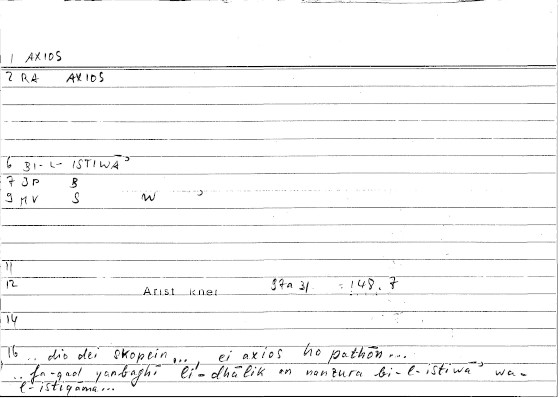 1 AXIOS
2 RA AXIOS
6 BI-L-ISTIWĀʾ
7 JP B
9 MV S W ʾ
11
12 Arist Rhet 87a31 = 148.7
14
16 .. dio dei skopein..., ei axios ho pathōn...
.. fa-qad yanbaghī li-dhālik an nanẓura bi-l-istiwāʾ wa-
l-istiqāma...